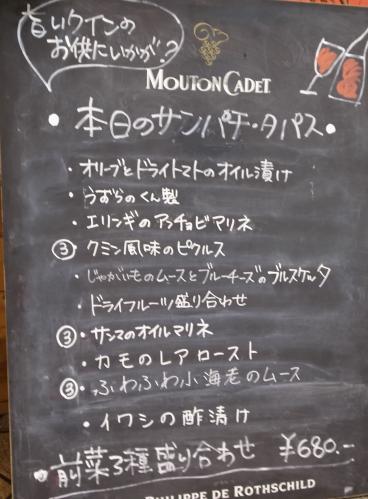 旨いワインの
お供にいかが？
MOUTON CADET
・本日のサンパチ・タパス・
・オリーブとドライトマトのオイル漬け
・うずらのくん製
・エリンギのアンチョビマリネ
③・クミン風味のピクルス
・じゃがいものムースとブルーチーズのブルスケッタ
・ドライフルーツ盛り合わせ
③・サンマのオイルマリネ
・カモのレアロースト
③・ふわふわ小海老のムース
・イワシの酢漬け
・前菜3種盛り合わせ ¥680.-
PHILIPPE DE ROTHSCHILD